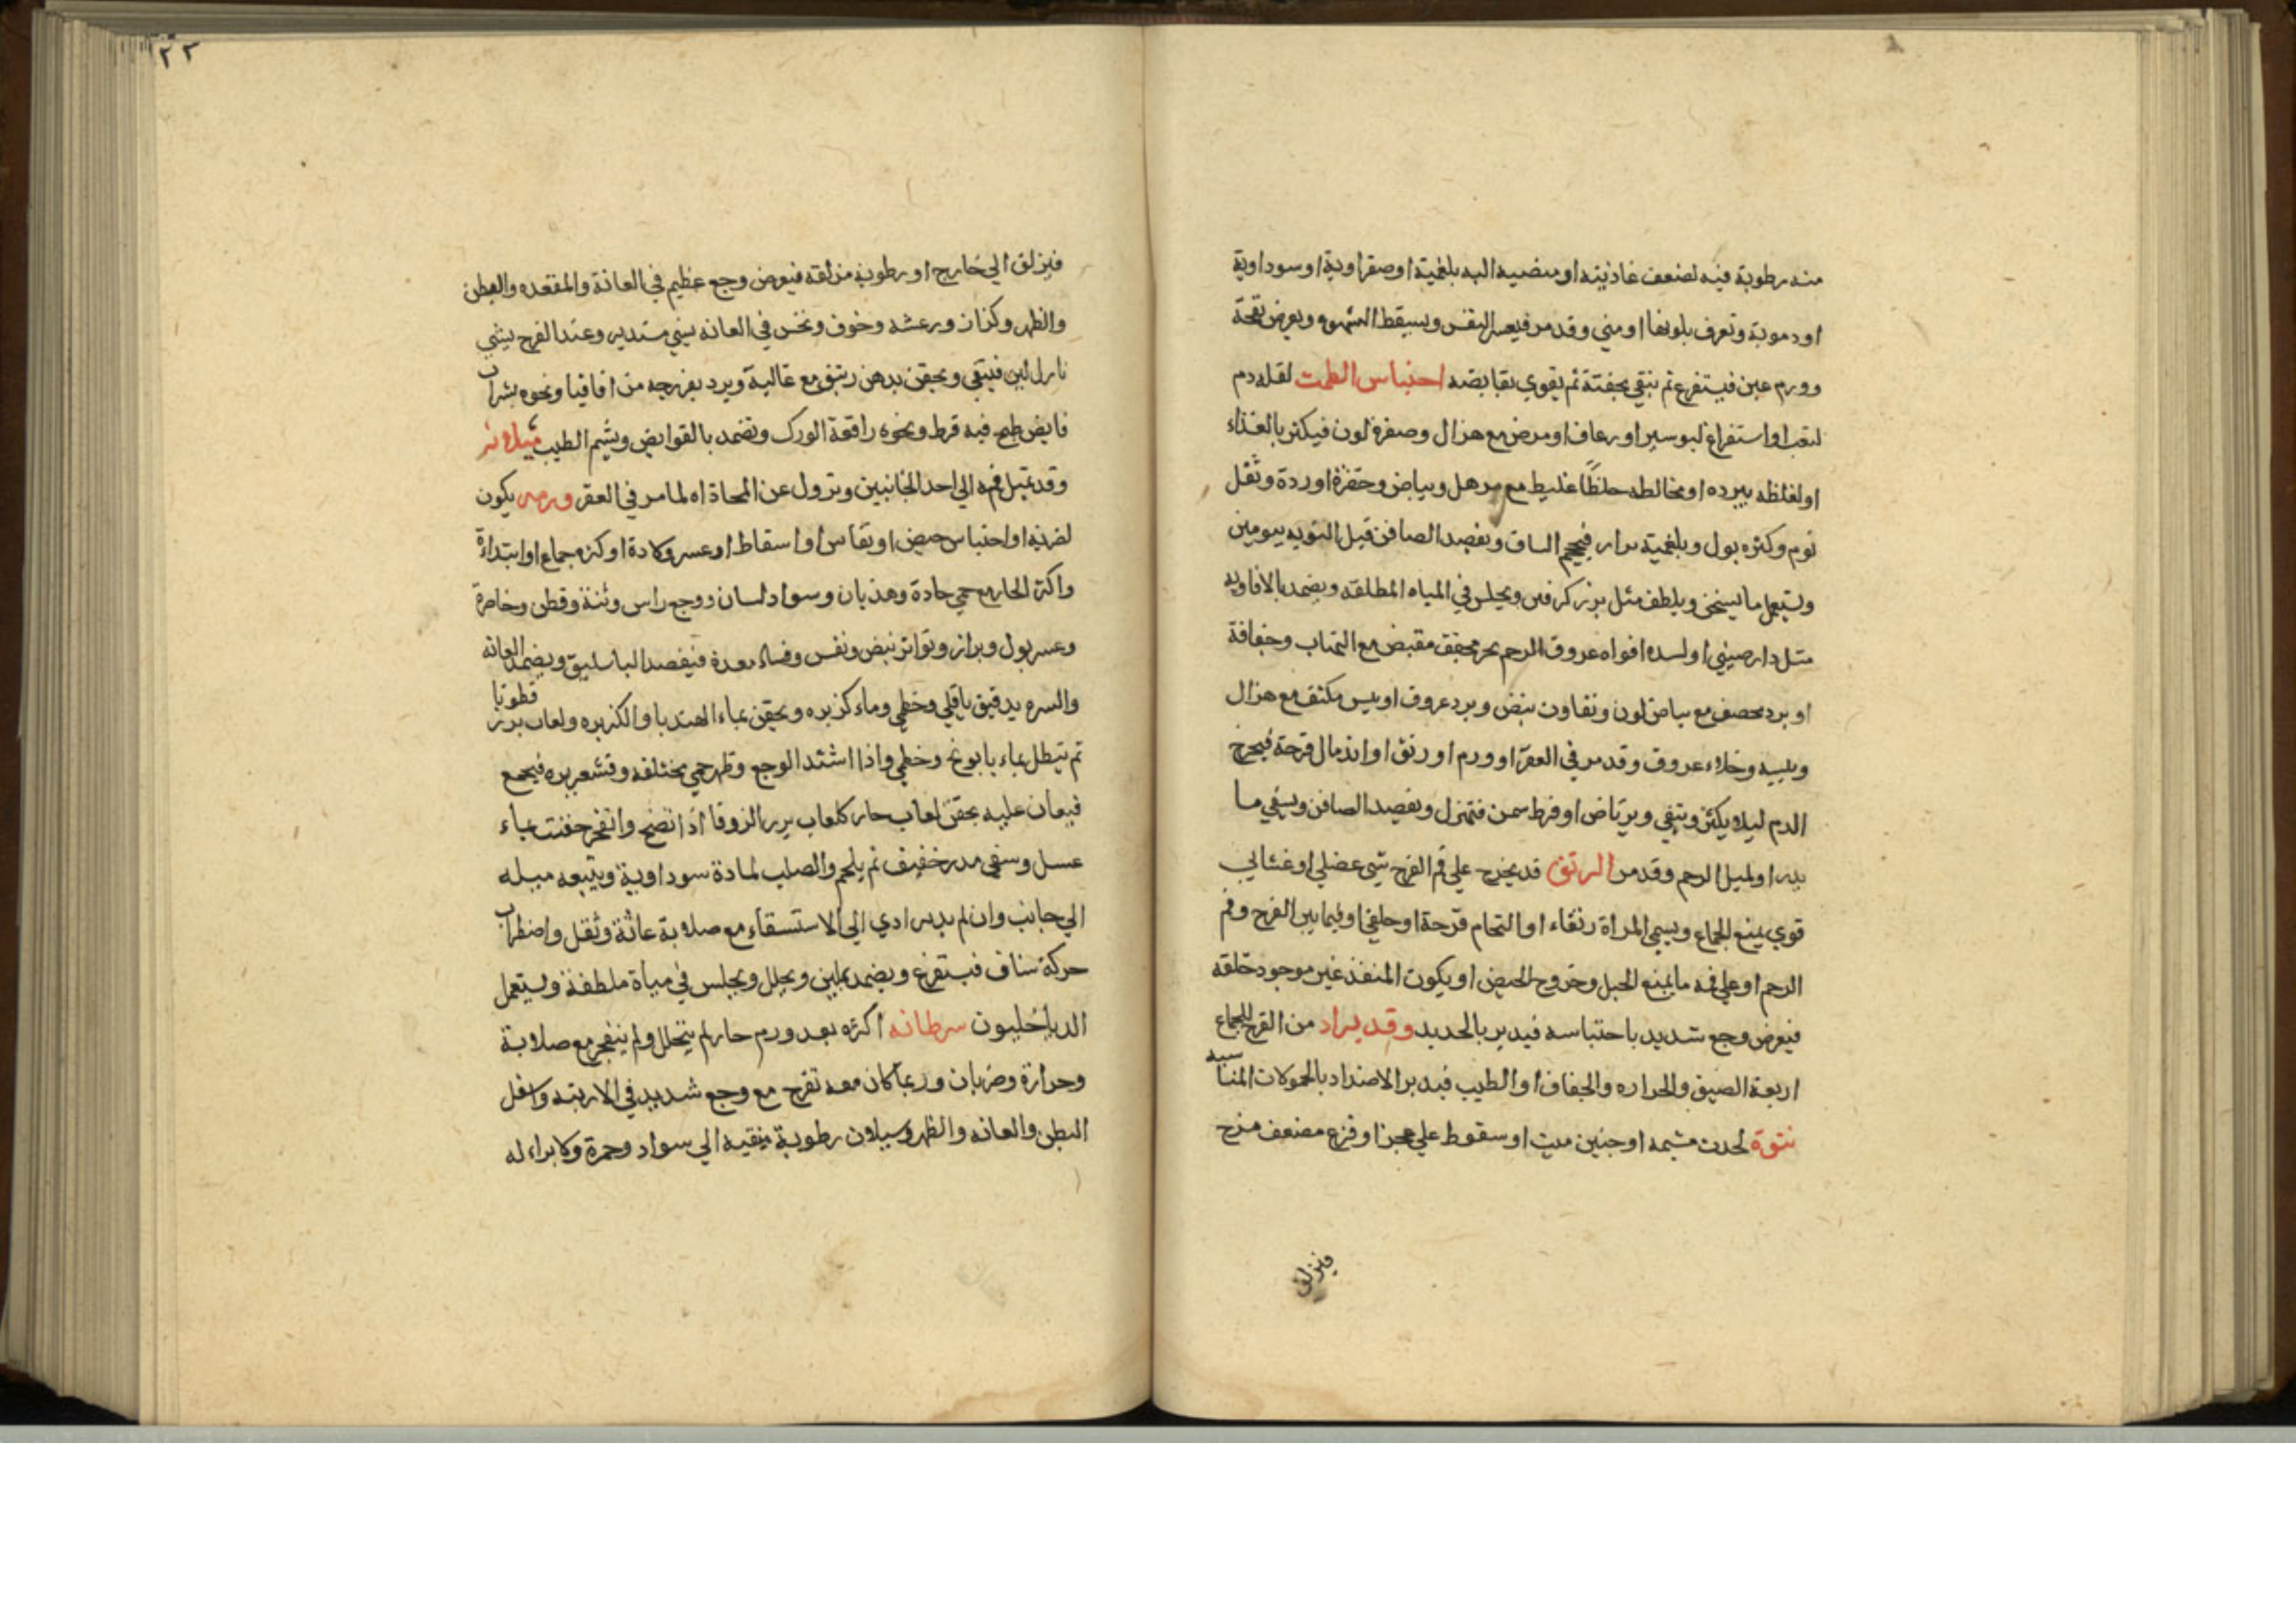 منه رطوبة فيه لضعف غاذيته او منصبه اليه بلغمية او صفراوية او سوداوية
او دموية وتعرف بلونها او مني وقد مر فيعسر النفس ويسقط الشهوه ويعرض نفخة
وورم عين فيستفرغ ثم ينقي بحقنة ثم يقوي بقابضه احتباس الطمث لقله دم
لتعب او استفراغ لبوسير او رعاف او مرض مع هزال وصفرة لون فيكثر بالغذاء
او لغلظه ببرده او مخالطه خلطًا غليظ مع ترهل وبياض وخضرة اوردة وثقل
نوم وكثره بول وبلغمية براز فيحجم الساق ويفصد الصافن قبل النوبه بيومين
ويستعمل ما يسخن ويلطف مثل بزر كرفس ويجلس في المياه المطلقه ويضمد بالافاويه
مثل دارصيني او لسده افواه عروق الرحم بحر مجفف مقبض مع التهاب وجفافة
او برد محصف مع بياض لون وتفاوت نبض وبرد عروق او يبس مكثف مع هزال
ويبسه وخلاء عروق وقد مر في العقر او ورم او رتق او اندمال قرحة فيخرج
الدم ليلا يكثر وينقي ويرتاض او فرط سمن فتهزل ويفصد الصافن ويسقي ما
يدر او لميل الرحم وقد مر الرتق قد يخرج علي فم الفرج شي عضلي او غشائي
قوي يمنع الجماع ويسمي المراة رتقاء او التحام قرحة او خلقي او فيما بين الفرج وفم
الرحم او علي فمه ما يمنع الحبل وخروج الحيض او يكون المنفذ غير موجود خلقه
فيعرض وجع شديد باحتباسه فيدبر بالحديد وقد يراد من الفرج للجماع
اربعة الضيق والحراره والجفاف او الطيب فيدبر الاضداد بالحمولات المناسبه
نتوة لحدث مشيمه او جنين ميت او سقوط علي عجز او فزع مضعف مزج
فيزلق
٢٣
فيزلق الي خارج او رطوبة مزلقه فيعرض وجع عظيم في العانة والمقعده والبطن
والظهر وكزاز ورعشه وخوف ونخس في العانه بشي مستدير وعند الفرج بشي
نازل لين فينقي ويحقن بدهن زنبق مع غالية ويرد بفرزجه من اقاقيا ونحوه بشراب
قابض طبخ فيه قرط ونحوه رافعة الورك وتضمد بالقوابض ويشم الطيب ميلانه
وقد يميل فمه الي احد الجانبين وتزول عن المحاذاه لما مر في العقر ورمه يكون
لضربه او احتباس حيض او نفاس او اسقاط او عسر ولادة او كثره جماع او ابتداءة
واكثر الحار مع حمي حادة وهذيان وسواد لسان ووجع راس وثنة وقطن وخاصرة
وعسر بول وبراز وتواتر نبض ونفس وفساد معدة فيفصد الباسليق ويضمد العانه
والسره بدقيق باقلي وخطمي وماء كزبره ويحقن بماء الهندبا والكزبره ولعاب بزر قطونا
ثم ينطل بماء بابونج وخطمي واذا اشتد الوجع وظهر حمي مختلفه وقشعريره فيجمع
فيعان عليه بحقن لعاب حار كلعاب بزر الزوفا اذا نضج وانفجر حقنت بماء
عسل وسقي مدر خفيف ثم يلحم والصلب لمادة سوداوية ويتبعه ميله
الي جانب وان لم يدبر ادي الي الاستسقاء مع صلابة عانة وثقل واضطراب
حركة ساق فيستفرغ ويضمد بملين ويحلل ويجلس في مياة ملطفة ويستعمل
الدياخليون سرطانه اكثره بعد ورم حار لم يتحلل ولم ينفجر مع صلابة
وحرارة وضربان وربما كان معه تقرح مع وجع شديد في الاربته واسفل
البطن والعانه والظهر وسيلان رطوبة منقيه الي سواد وحمرة ولا براء له